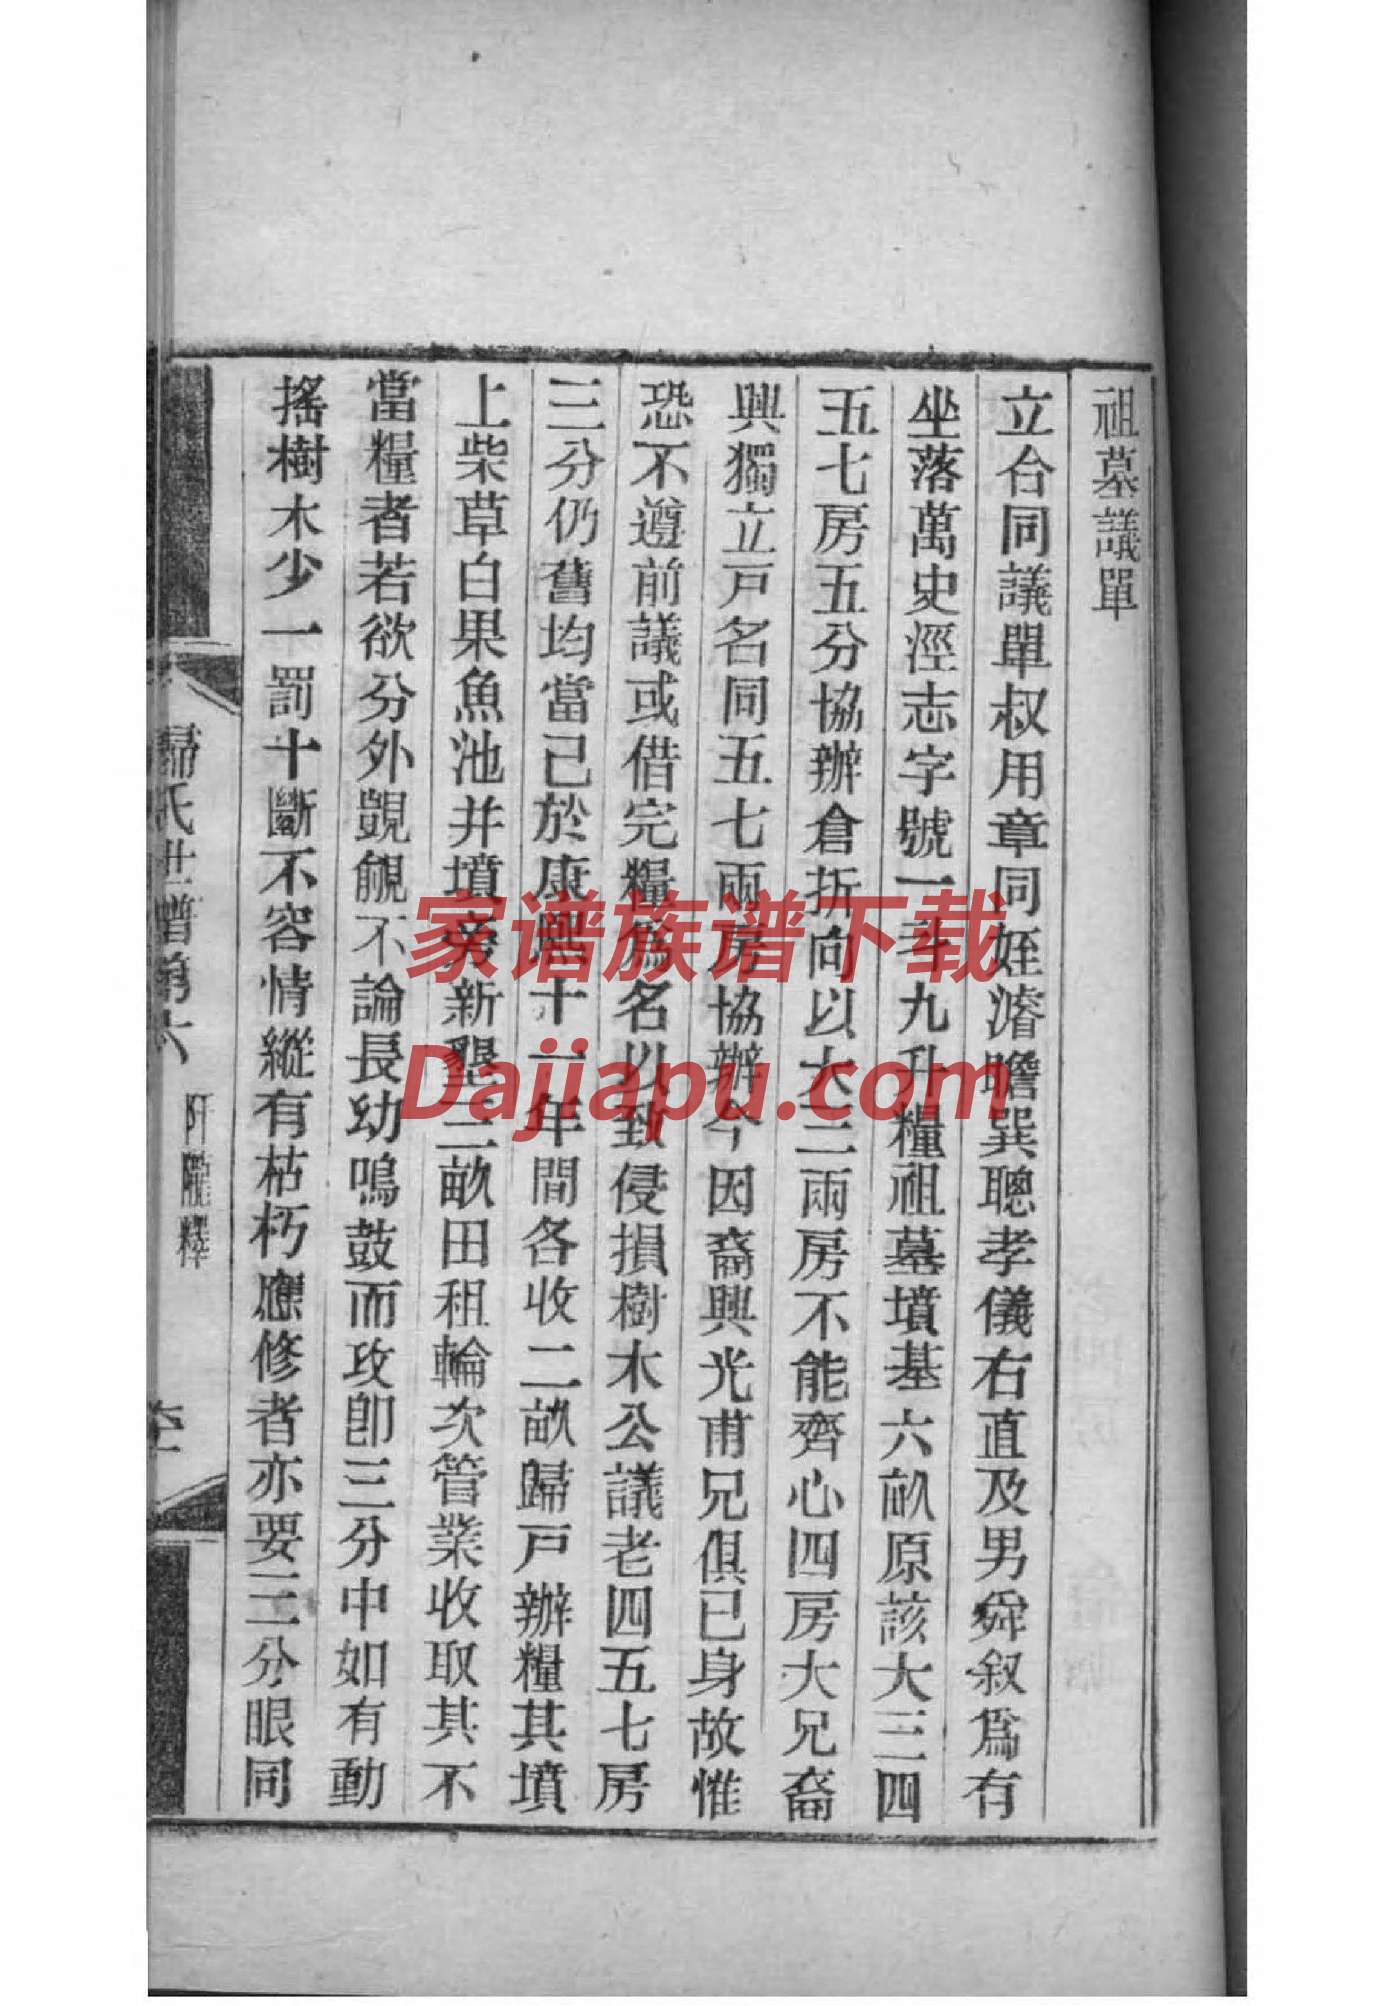 祖墓議單
立合同議單叔用章同姪濬瞻巽聰孝儀右直及男舜叙爲有
坐落萬史涇志字號一斗九升糧祖墓墳基六畝原該大三四
五七房五分協辦倉折向以大三兩房不能齊心四房大兄裔
興獨立戸名同五七兩房協辦今因裔興光甫兄俱已身故惟
恐不遵前議或借完糧爲名以致侵損樹木公議老四五七房
三分仍舊均當已於康熙十一年間各收二畝歸戸辦糧其墳
上柴草白果魚池并墳旁新墾三畝田租輪次管業收取其不
當糧者若欲分外覬覦不論長幼鳴鼓而攻卽三分中如有動
搖樹木少一罰十斷不容情縱有枯朽應修者亦要三分眼同
歸氏世譜第六
阡隴釋
家谱族谱下载
Dajiapu.com